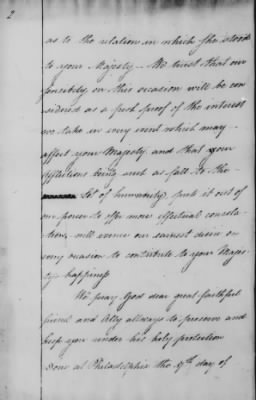 2
as to the relation in which she stood
to your Majesty — We trust that our
sensibility on this occasion will be con
sidered as a fresh proof of the interest
we take in every event which may
affect your Majesty and that your
afflictions being such as fall to the
lot of humanity, put it out of
our power to offer more effectual consola-
tion, will evince our earnest desire on
every occasion to contribute to your Majes-
ty's happiness
We pray God dear great faithful
friend and Ally allways to preserve and
keep you under his holy protection
Done at Philadelphia the 9th day of